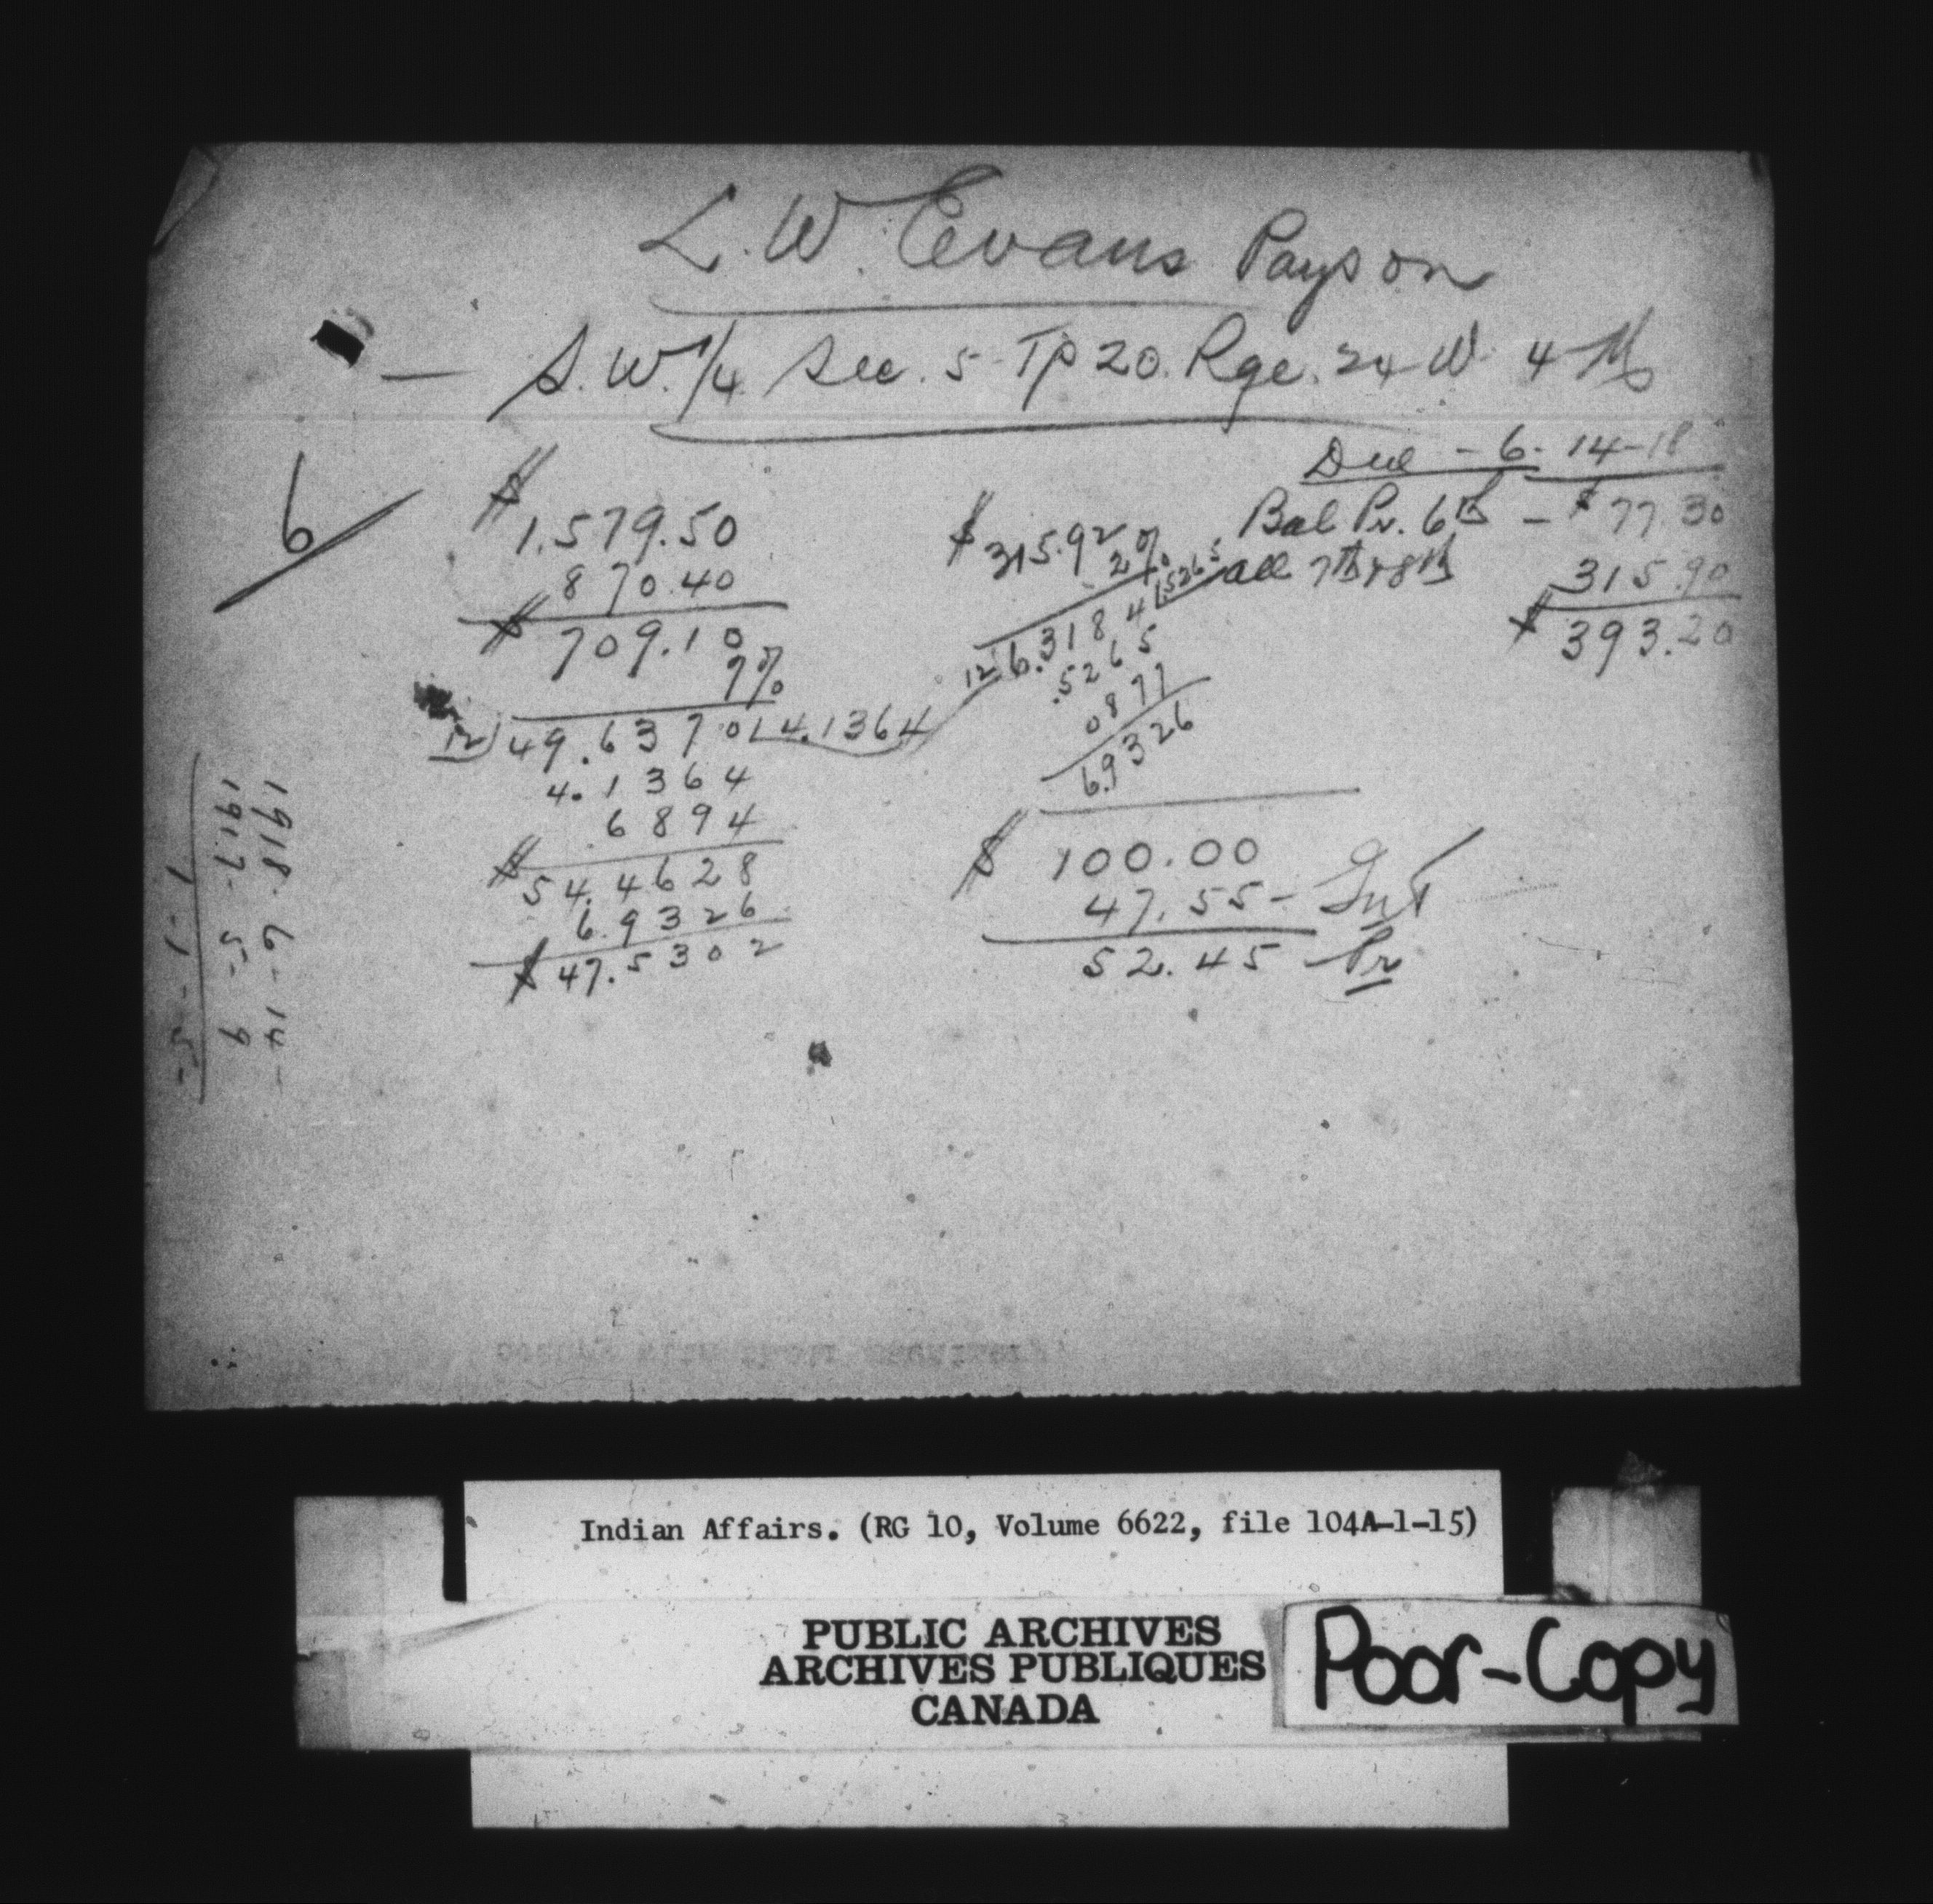 L. W. Evans Payson
— S. W. 1/4 Sec. 5 Tp 20. Rge. 24 W 4 M
6
Due - 6 - 14 - 18
Bal Pr. 6th - $77.30
all 7th & 8th 315.90
$393.20
$
1,579.50
870.40
$ 709.10
7%
12) 49.6370 | 4.1364
4.1364
6894
$54.4628
6.9326
$47.5302
$315.92
2%
12 | 6.3184 | .5265
.5265
0877
6.9326
$ 100.00
47.55 - Int
52.45 Pr
1918. 6 - 14 -
1917. 5 - 9
1 - 1 - 5 -
Indian Affairs. (RG 10, Volume 6622, file 104A-1-15)
PUBLIC ARCHIVES
ARCHIVES PUBLIQUES
CANADA
Poor-Copy